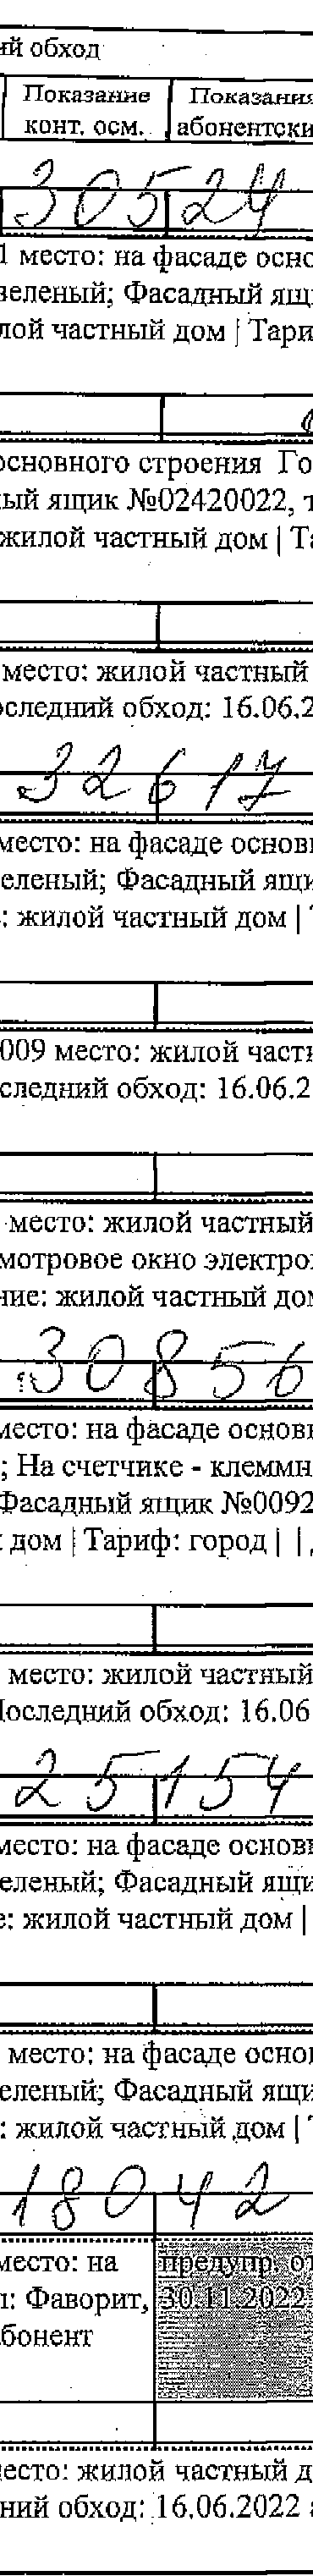 ий обход
Показание Показания
конт. осм. абонентски
30524
1 место: на фасаде осно
зеленый; Фасадный ящи
лой частный дом | Тари
основного строения Го
ый ящик №02420022, т
жилой частный дом | Та
место: жилой частный
оследний обход: 16.06.2
32617
место: на фасаде основн
еленый; Фасадный ящи
: жилой частный дом |
009 место: жилой частн
следний обход: 16.06.2
место: жилой частный
мотровое окно электро
ние: жилой частный дом
30856
место: на фасаде основн
; На счетчике - клеммн
Фасадный ящик №0092
дом | Тариф: город | |
место: жилой частный
Последний обход: 16.06
25154
место: на фасаде основн
еленый; Фасадный ящи
е: жилой частный дом |
место: на фасаде основ
еленый; Фасадный ящи
: жилой частный дом |
18042
место: на предупр. от
п: Фаворит, 30.11.2022
бонент
место: жилой частный д
ний обход: 16.06.2022